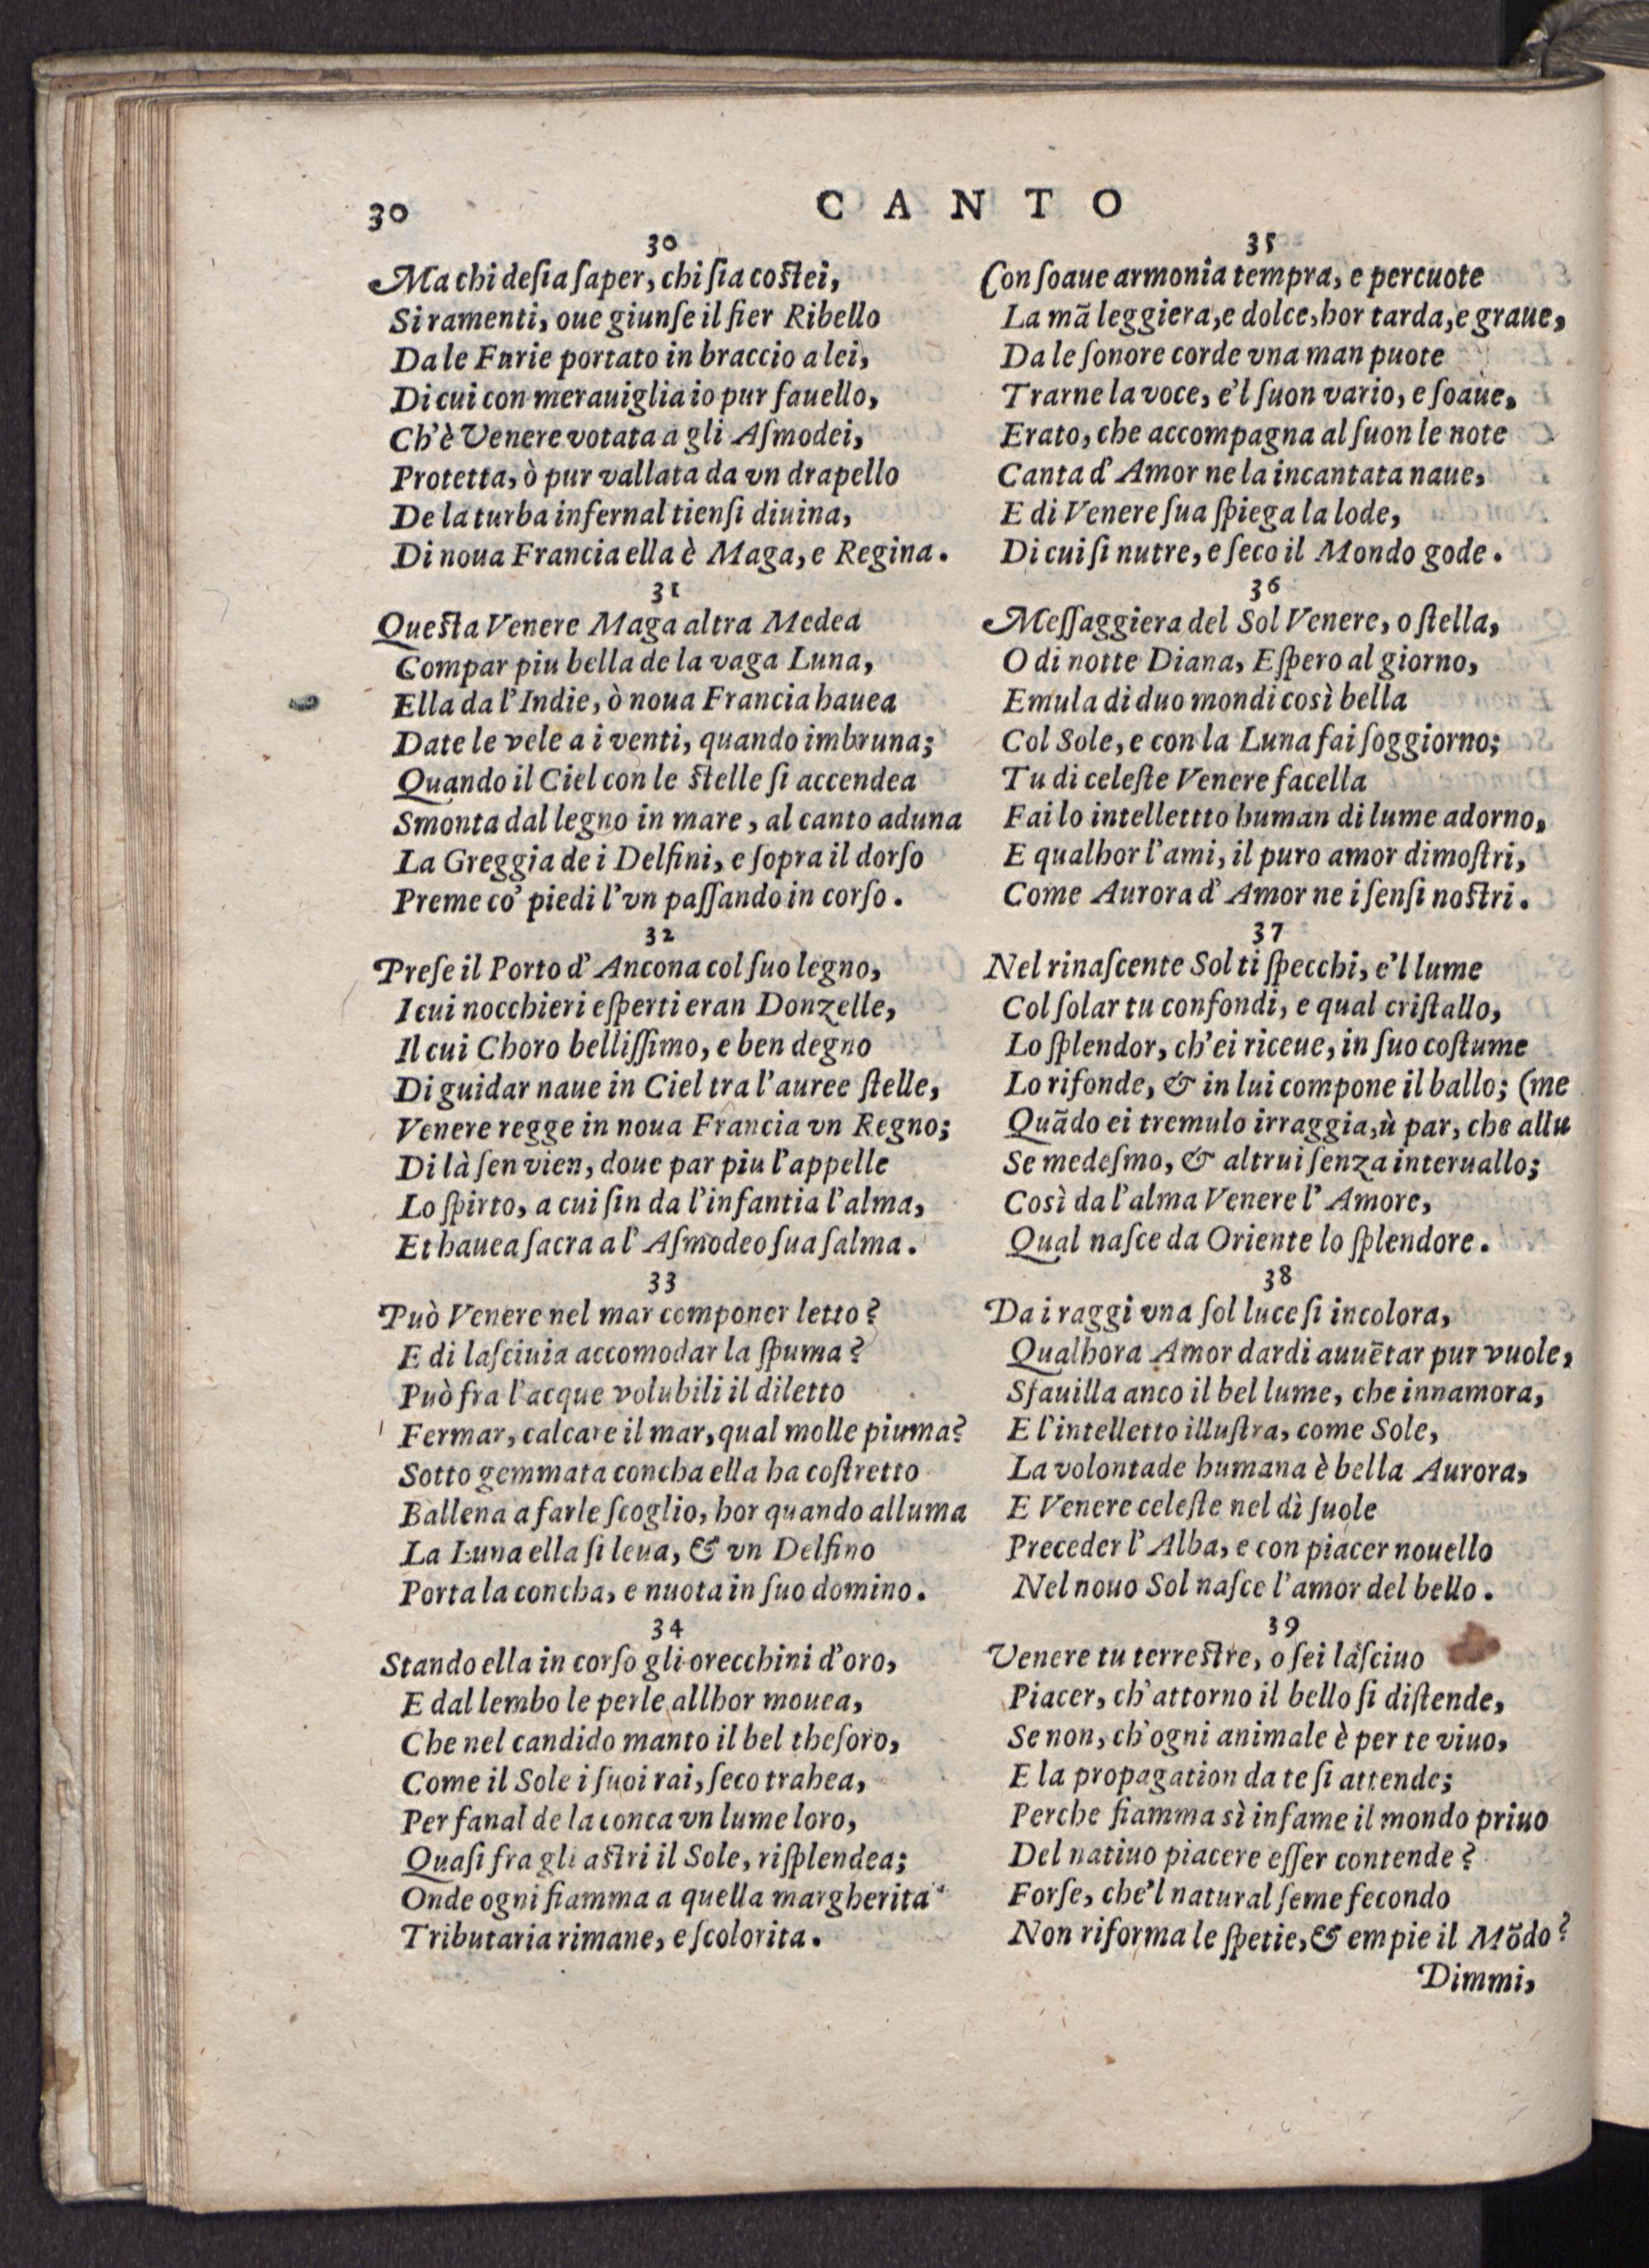 30
CANTO
30
Ma chi desia saper, chi sia costei,
Si ramenti, oue giunse il fier Ribello
Da le Furie portato in braccio a lei,
Di cui con merauiglia io pur fauello,
Ch'è Venere votata a gli Asmodei,
Protetta, ò pur vallata da vn drapello
De la turba infernal tiensi diuina,
Di noua Francia ella è Maga, e Regina.
31
Questa Venere Maga altra Medea
Compar piu bella de la vaga Luna,
Ella da l'Indie, ò noua Francia hauea
Date le vele a i venti, quando imbruna;
Quando il Ciel con le stelle si accendea
Smonta dal legno in mare, al canto aduna
La Greggia de i Delfini, e sopra il dorso
Preme co' piedi l'vn passando in corso.
32
Prese il Porto d'Ancona col suo legno,
I cui nocchieri esperti eran Donzelle,
Il cui Choro bellissimo, e ben degno
Di guidar naue in Ciel tra l'auree stelle,
Venere regge in noua Francia vn Regno;
Di là sen vien, doue par piu l'appelle
Lo spirto, a cui sin da l'infantia l'alma,
Et hauea sacra a l'Asmodeo sua salma.
33
Può Venere nel mar componer letto?
E di lasciuia accomodar la spuma?
Può fra l'acque volubili il diletto
Fermar, calcare il mar, qual molle piuma?
Sotto gemmata concha ella ha costretto
Ballena a farle scoglio, hor quando alluma
La Luna ella si leua, & vn Delfino
Porta la concha, e nuota in suo domino.
34
Stando ella in corso gli orecchini d'oro,
E dal lembo le perle allhor mouea,
Che nel candido manto il bel thesoro,
Come il Sole i suoi rai, seco trahea,
Per fanal de la conca vn lume loro,
Quasi fra gli astri il Sole, risplendea;
Onde ogni fiamma a quella margherita
Tributaria rimane, e scolorita.
35
Con soaue armonia tempra, e percuote
La mã leggiera, e dolce, hor tarda, e graue,
Da le sonore corde vna man puote
Trarne la voce, e'l suon vario, e soaue,
Erato, che accompagna al suon le note
Canta d'Amor ne la incantata naue,
E di Venere sua spiega la lode,
Di cui si nutre, e seco il Mondo gode.
36
Messaggiera del Sol Venere, o stella,
O di notte Diana, Espero al giorno,
Emula di duo mondi così bella
Col Sole, e con la Luna fai soggiorno;
Tu di celeste Venere facella
Fai lo intellettto human di lume adorno,
E qualhor l'ami, il puro amor dimostri,
Come Aurora d'Amor ne i sensi nostri.
37
Nel rinascente Sol ti specchi, e'l lume
Col solar tu confondi, e qual cristallo,
Lo splendor, ch'ei riceue, in suo costume
Lo rifonde, & in lui compone il ballo; (me
Quãdo ei tremulo irraggia, ù par, che allu
Se medesmo, & altrui senza interuallo;
Così da l'alma Venere l'Amore,
Qual nasce da Oriente lo splendore.
38
Da i raggi vna sol luce si incolora,
Qualhora Amor dardi auuẽtar pur vuole,
Sfauilla anco il bel lume, che innamora,
E l'intelletto illustra, come Sole,
La volontade humana è bella Aurora,
E Venere celeste nel dì suole
Preceder l'Alba, e con piacer nouello
Nel nouo Sol nasce l'amor del bello.
39
Venere tu terrestre, o sei lasciuo
Piacer, ch'attorno il bello si distende,
Se non, ch'ogni animale è per te viuo,
E la propagation da te si attende;
Perche fiamma sì infame il mondo priuo
Del natiuo piacere esser contende?
Forse, che'l natural seme fecondo
Non riforma le spetie, & empie il Mõdo?
Dimmi,